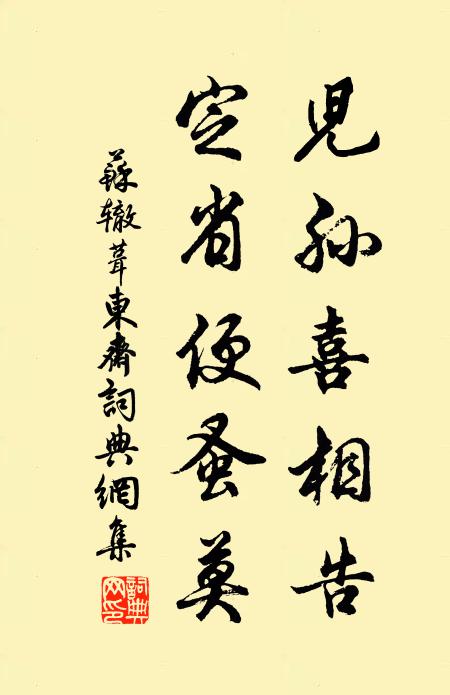 兒孫喜相告
定省便蚤莫
蘇辙葺東齋詞典網集
詞典網印